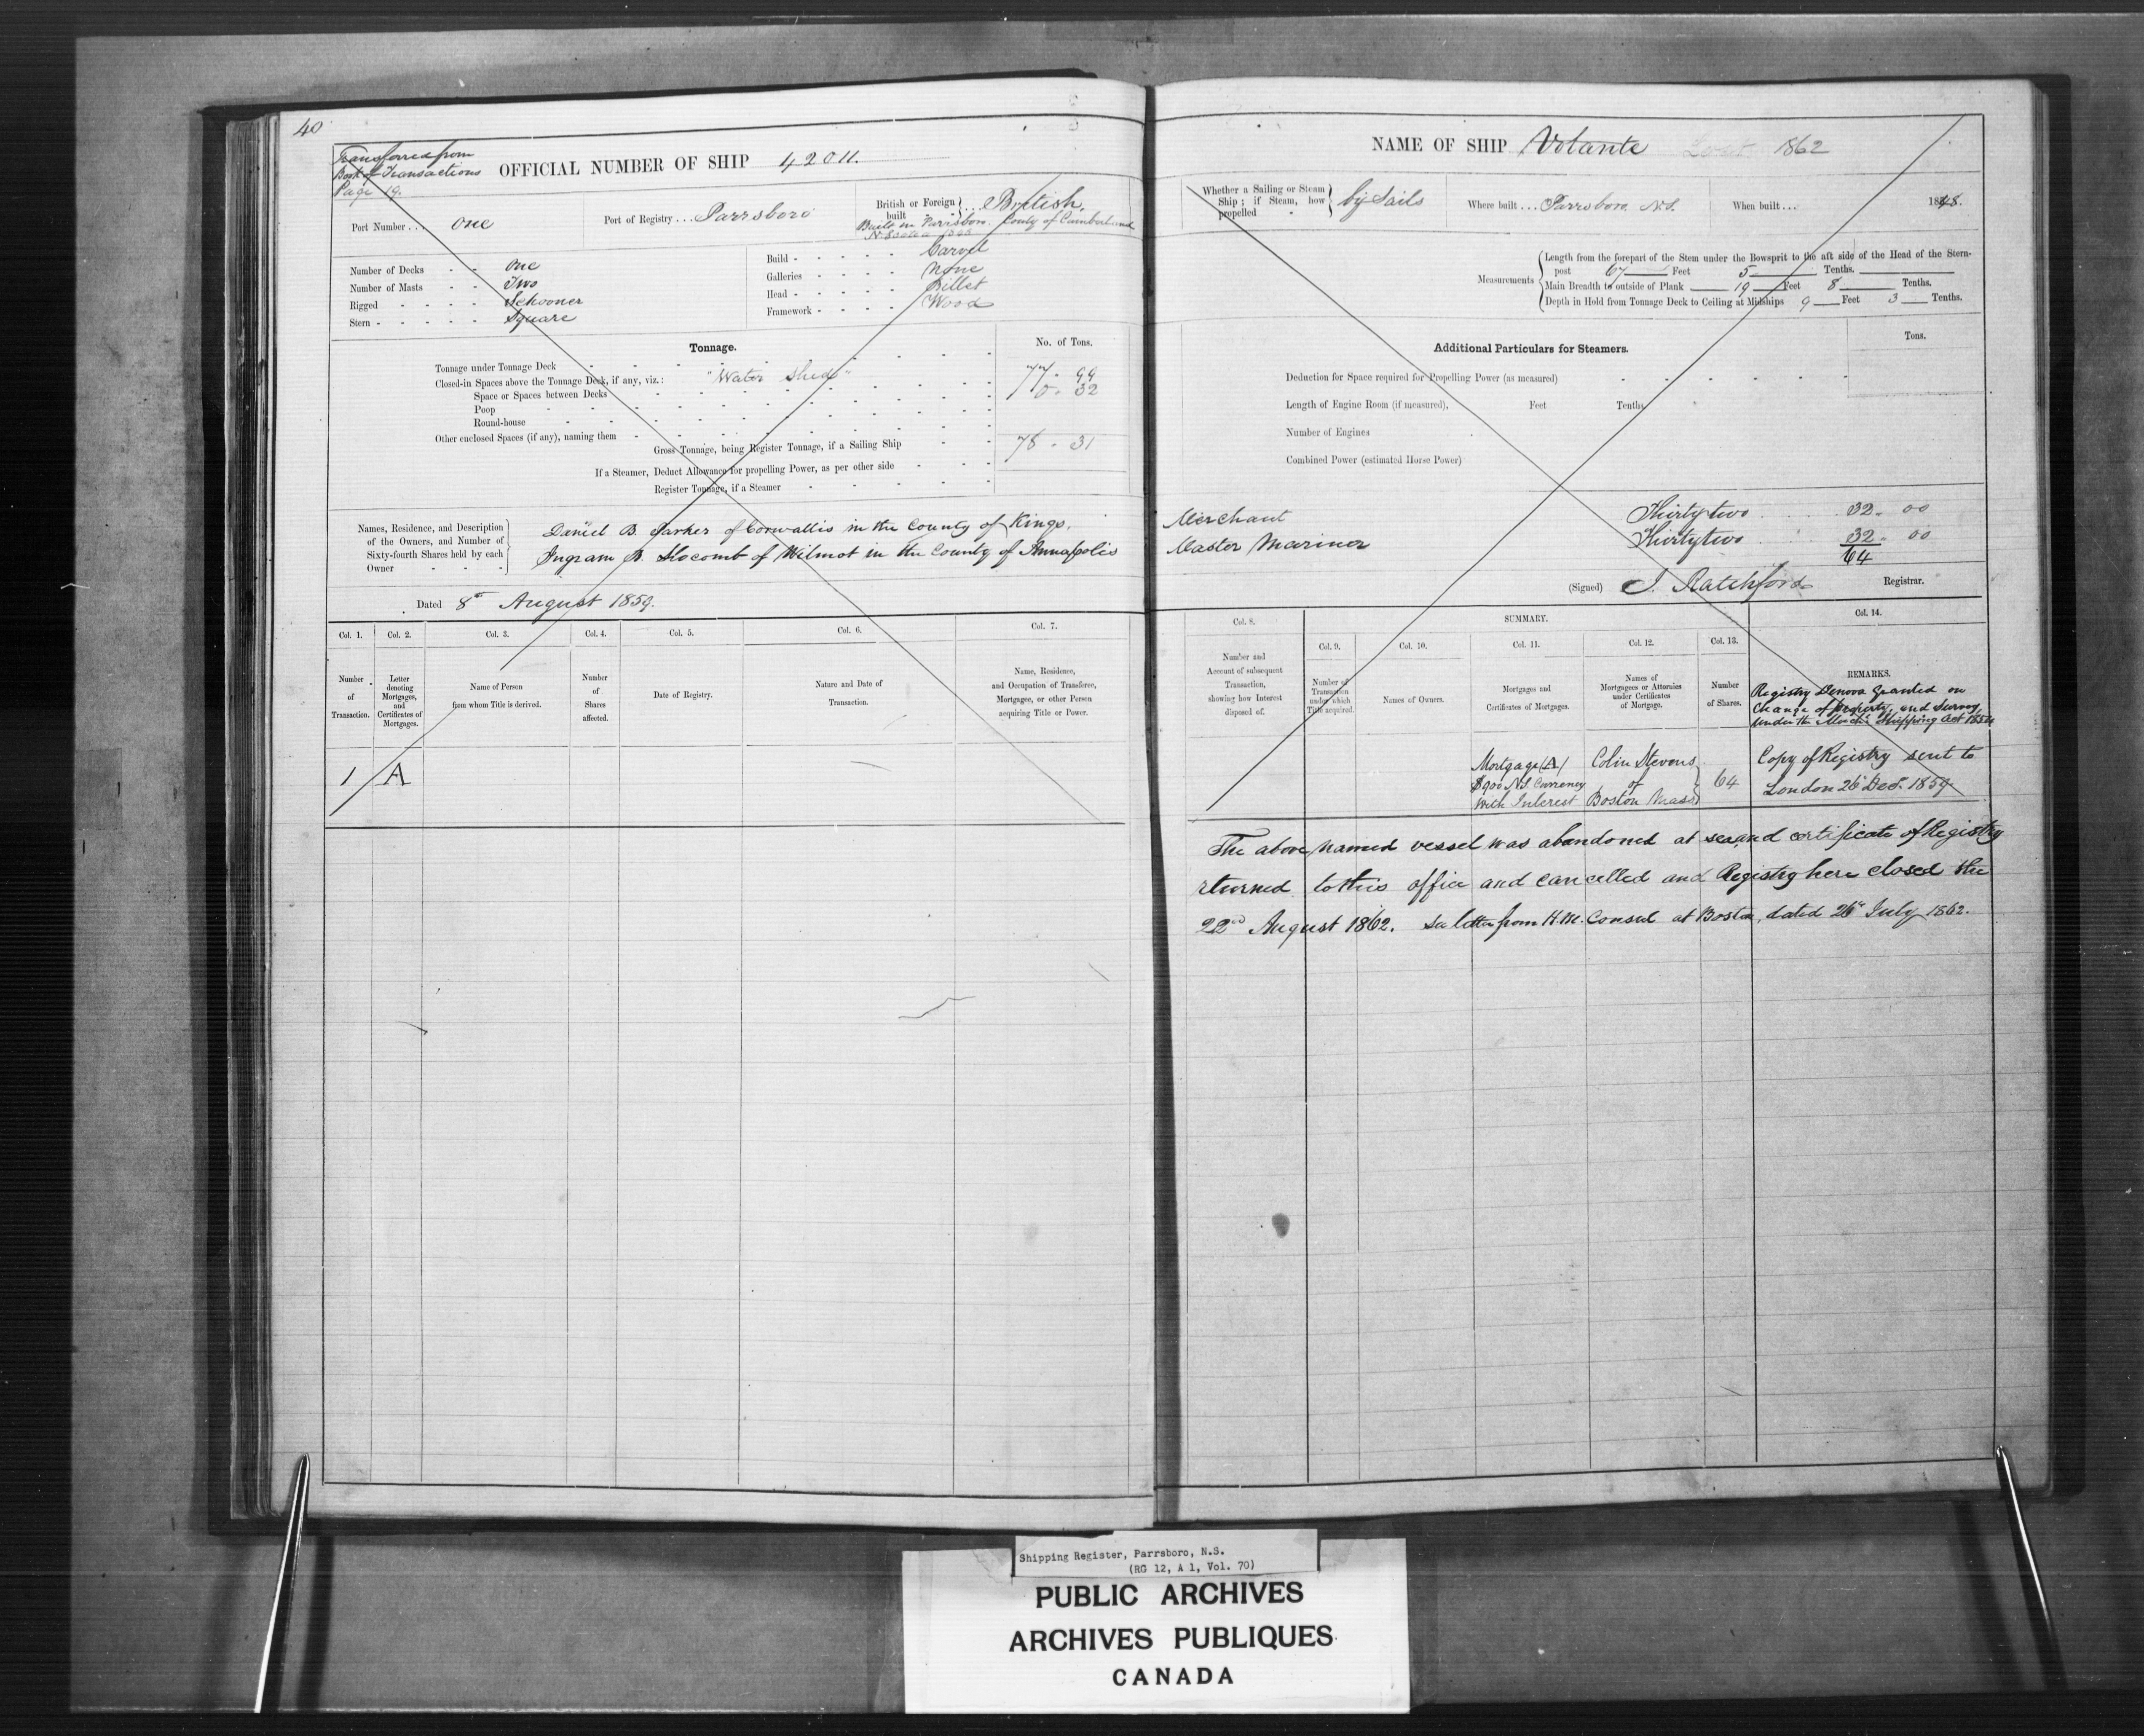 40
Transferred from
Book of Transactions
Page 19.
OFFICIAL NUMBER OF SHIP 42011.
Port Number... One
Port of Registry... Parrsboro
British or Foreign built ... British.
Built in Parrsboro. County of Cumberland
N. Scotia
Number of Decks - - One
Number of Masts - - Two
Rigged - - - - Schooner
Stern - - - - - Square
Build - - - - - Carvel
Galleries - - - - None
Head - - - - - Billet
Framework - - - - Wood
Tonnage.
No. of Tons.
Tonnage under Tonnage Deck 77 . 99
Closed-in Spaces above the Tonnage Deck, if any, viz.: "Water Shed" 0 . 32
Space or Spaces between Decks
Poop
Round-house
Other enclosed Spaces (if any), naming them
Gross Tonnage, being Register Tonnage, if a Sailing Ship 78 . 31
If a Steamer, Deduct Allowance for propelling Power, as per other side
Register Tonnage, if a Steamer
Names, Residence, and Description
of the Owners, and Number of
Sixty-fourth Shares held by each
Owner - - -
Daniel B. Parker of Cornwallis in the County of Kings,
Ingram B. Slocomb of Wilmot in the County of Annapolis
Dated 8th August 1859.
Col. 1. Col. 2. Col. 3. Col. 4. Col. 5. Col. 6. Col. 7.
Number of Transaction.
Letter denoting Mortgages, and Certificates of Mortgages.
Name of Person from whom Title is derived.
Number of Shares affected.
Date of Registry.
Nature and Date of Transaction.
Name, Residence, and Occupation of Transferee, Mortgagee, or other Person acquiring Title or Power.
1 A
NAME OF SHIP Volante Lost 1862
Whether a Sailing or Steam Ship; if Steam, how propelled by Sails
Where built... Parrsboro N.S.
When built... 1848.
Measurements
Length from the forepart of the Stem under the Bowsprit to the aft side of the Head of the Stern-
post 67 Feet 5 Tenths.
Main Breadth to outside of Plank 19 Feet 8 Tenths.
Depth in Hold from Tonnage Deck to Ceiling at Midships 9 Feet 3 Tenths.
Additional Particulars for Steamers.
Tons.
Deduction for Space required for Propelling Power (as measured)
Length of Engine Room (if measured), Feet Tenths
Number of Engines
Combined Power (estimated Horse Power)
Merchant Thirty two 32 . 00
Master Mariner Thirty two 32 . 00
64
(Signed) J. Ratchford Registrar.
SUMMARY.
Col. 8. Col. 9. Col. 10. Col. 11. Col. 12. Col. 13. Col. 14.
Number and Account of subsequent Transaction, showing how Interest disposed of.
Number of Transaction under which Title acquired.
Names of Owners.
Mortgages and Certificates of Mortgages.
Names of Mortgagees or Attornies under Certificates of Mortgage.
Number of Shares.
REMARKS.
Registry Denovo granted on
Change of property, and Survey
under the Merch. Shipping Act 1854
Mortgage (A)
$900 N.S. Currency
with Interest
Colin Stevens
of
Boston Mass
64
Copy of Registry sent to
London 26 Decr. 1859.
The above named vessel was abandoned at sea, and certificate of Registry
returned to this office and cancelled and Registry here closed the
22nd August 1862. See letter from H.M. Consul at Boston, dated 26th July 1862.
Shipping Register, Parrsboro, N.S.
(RG 12, A 1, Vol. 70)
PUBLIC ARCHIVES
ARCHIVES PUBLIQUES
CANADA